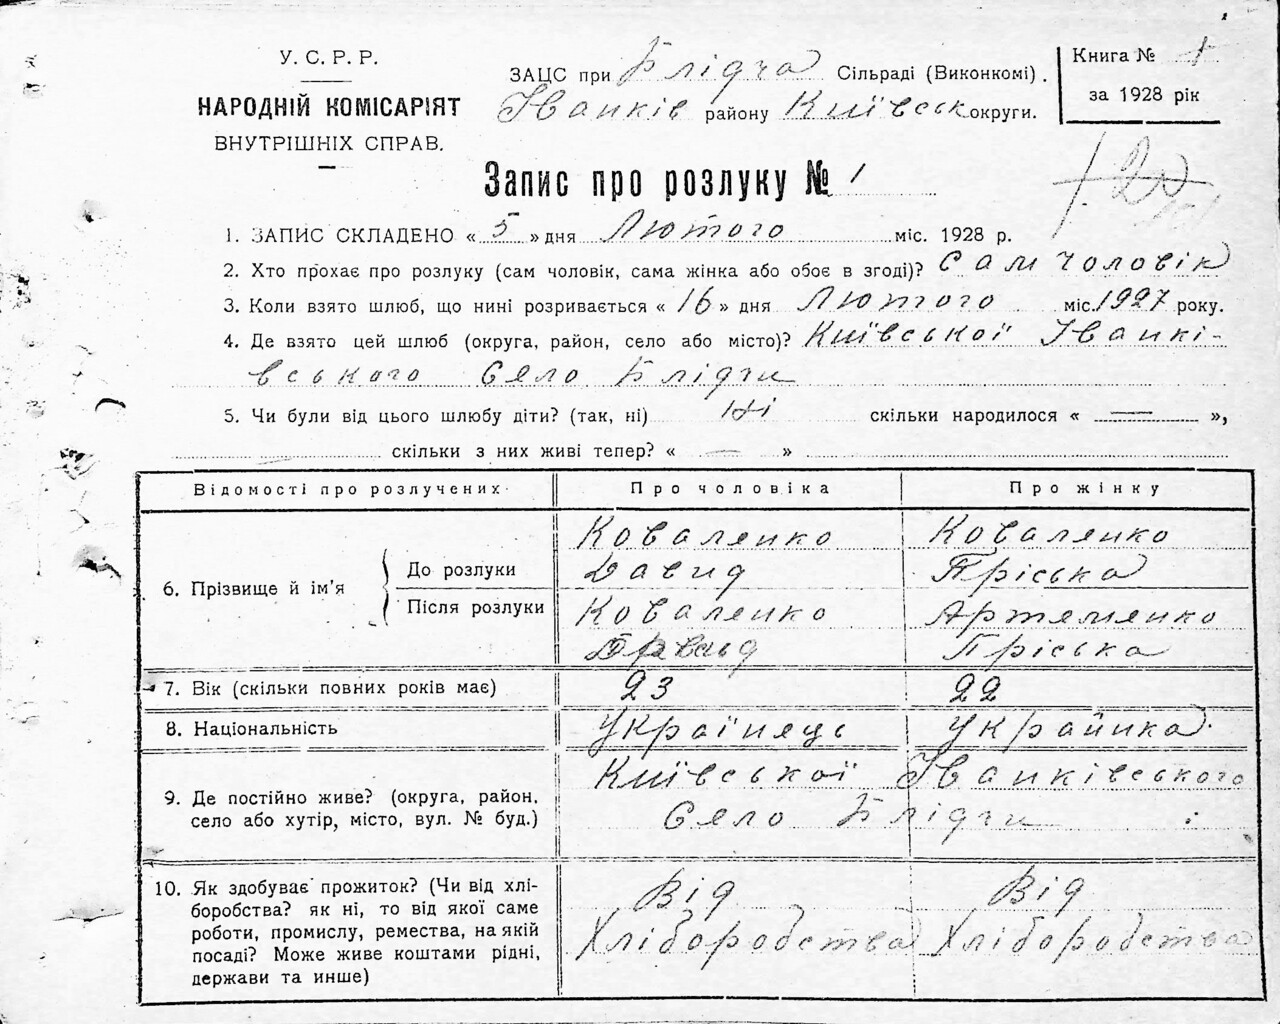 У. С. Р. Р.
НАРОДНІЙ КОМІСАРІЯТ
ВНУТРІШНІХ СПРАВ.
ЗАЦС при Блідча Сільраді (Виконкомі).
Іванків району Київськ округи.
Книга № 1
за 1928 рік
Запис про розлуку № 1
1. ЗАПИС СКЛАДЕНО « 5 » дня Лютого міс. 1928 р.
2. Хто прохає про розлуку (сам чоловік, сама жінка або обоє в згоді)? Сам чоловік
3. Коли взято шлюб, що нині розривається « 16 » дня Лютого міс. 1927 року.
4. Де взято цей шлюб (округа, район, село або місто)? Київської Іванкі-
вського Сяло Блідчи
5. Чи були від цього шлюбу діти? (так, ні) Ні скільки народилося « — »,
скільки з них живі тепер? « — »
Відомості про розлучених Про чоловіка Про жінку
6. Прізвище й ім'я
До розлуки Коваленко Давид Коваленко Пріська
Після розлуки Коваленко Артеменко Пріська
7. Вік (скільки повних років має) 23 22
8. Національність Українець Украйнка
9. Де постійно живе? (округа, район, Київської Іванківського
село або хутір, місто, вул. № буд.) Сяло Блідчи
10. Як здобуває прожиток? (Чи від хлі- Від Від
боробства? як ні, то від якої саме
роботи, промислу, ремества, на якій Хліборобства Хліборобства
посаді? Може живе коштами рідні,
держави та инше)